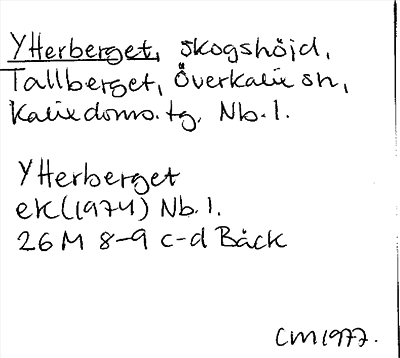 Ytterberget, skogshöjd,
Tallberget, Överkalix sn,
Kalix doms. tg, Nb. l.
Ytterberget
ek (1974) Nb. l.
26 M 8-9 c-d Bäck
CM 1977.